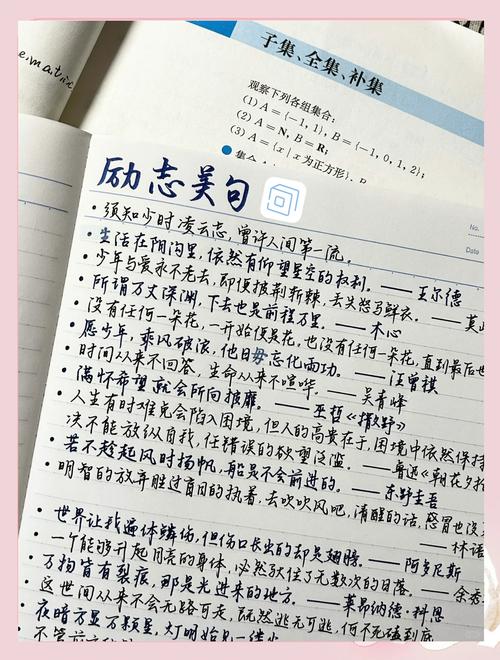 ematrix
子集、全集、补集
观察下列各组集合:
(1) A={-1, 1}, B={-1, 0, 1, 2};
(2) A=N, B=R;
(3) A={x|x为正方形}, B
集合
励志美句
No.
Date
·须知少时凌云志,曾许人间第一流。
·生活在阴沟里,依然有仰望星空的权利。——王尔德
·少年与爱永不老去,即便披荆斩棘,丢失怒马鲜衣。——莫
·所谓万丈深渊,下去也是前程万里。——木心
·没有任何一朵花,一开始便是花,也没有任何一朵花,直到最后也
·愿少年,乘风破浪,他日毋忘化雨功。——汪曾祺
·时间从来不回答,生命从来不喧哗。——吴青峰
·满怀希望就会所向披靡。——巫哲《撒野》
·人生有时难免会陷入困境,但人的高贵在于,困境中依然保持
决不能放纵自我,任错误的欲望泛滥。——鲁迅《朝花夕拾
·若不趁起风时扬帆,船是不会前进的。——东野圭吾
·明智的放弃胜过盲目的执着,去吹吹风吧,清醒的话,感冒也没
——林语
·世界让我遍体鳞伤,但伤口长出的却是翅膀。——阿多尼斯
·一个能够升起月亮的身体,必然驮住了无数次的日落。——余秀
·万物皆有裂痕,那是光进来的地方。——莱昂纳德·科恩
·这世间从来不会无路可走,既然逃无可逃,何不死磕到底
·夜暗方显万颗星,灯明始见一缕
·不管前方